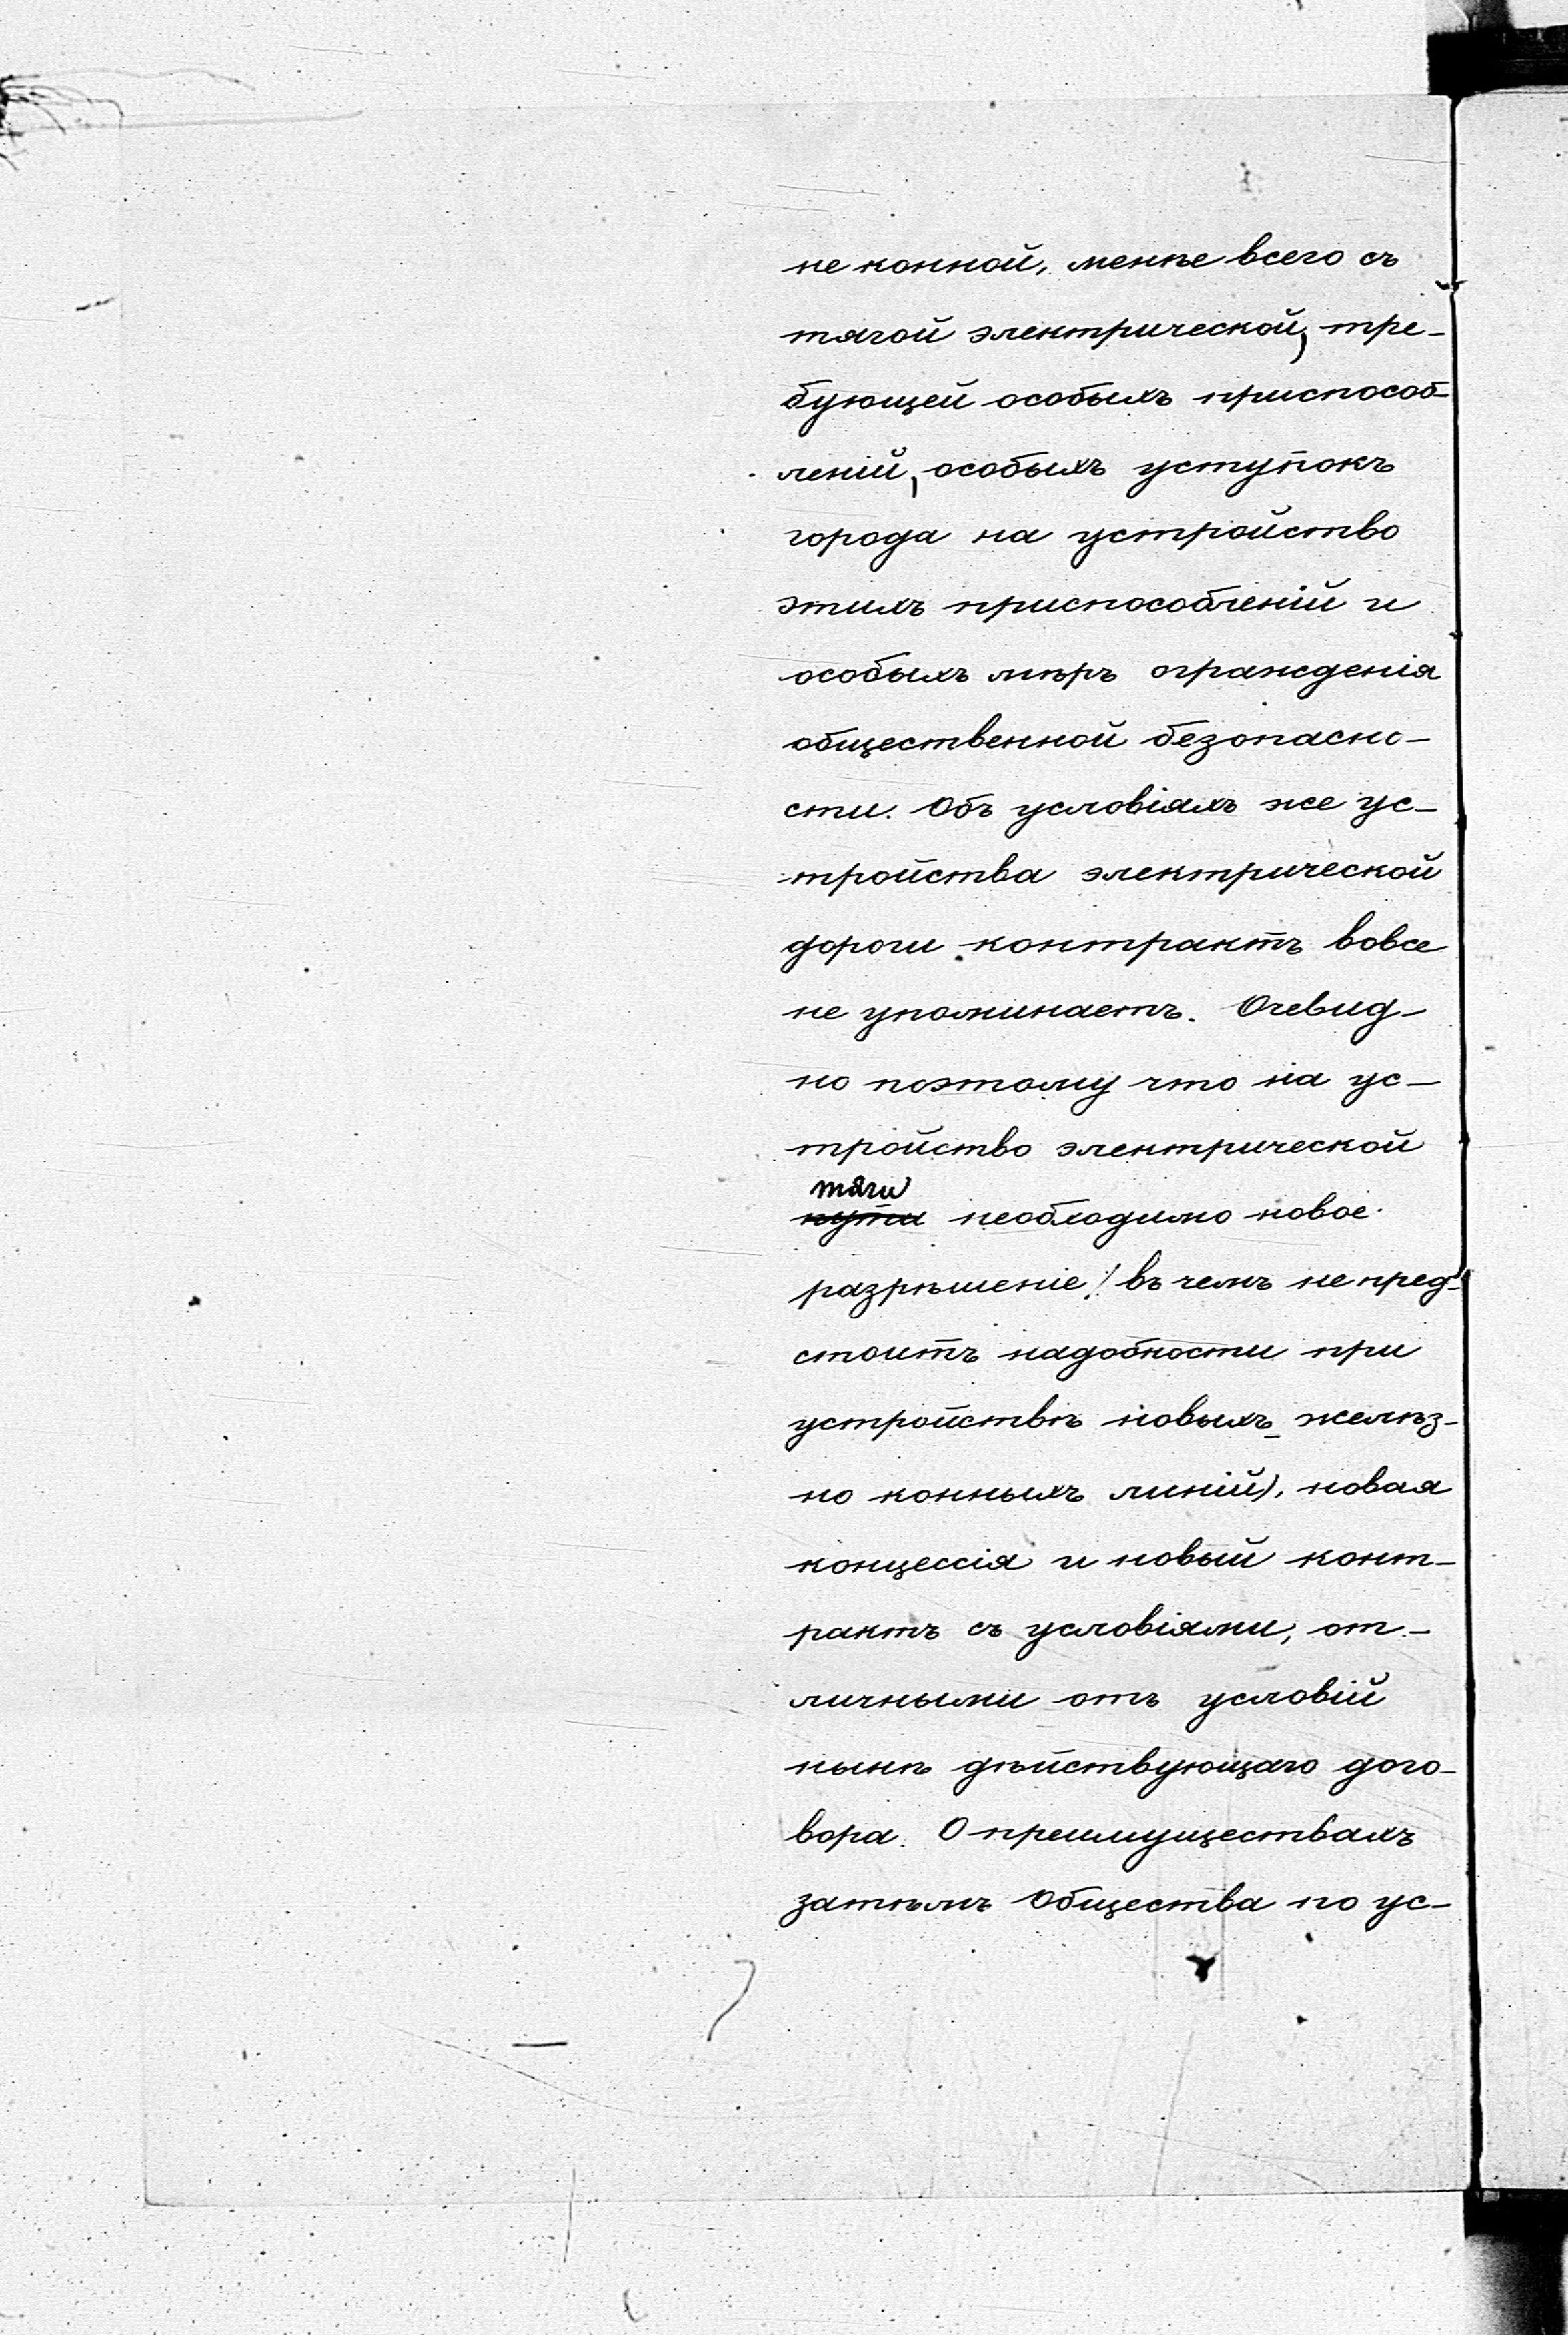 не конной, менѣе всего съ
тягой электрической, тре-
бующей особыхъ приспособ-
леній, особыхъ уступокъ
города на устройство
этихъ приспособленій и
особыхъ мѣръ огражденія
общественной безопасно-
сти. Объ условіяхъ же ус-
тройства электрической
дороги контрактъ вовсе
не упоминаетъ. Очевид-
но поэтому что на ус-
тройство электрической
тяги
пути необходимо новое
разрѣшеніе (въ чемъ не пред-
стоитъ надобности при
устройствѣ новыхъ желѣз-
но конныхъ линій), новая
концессія и новый конт-
рактъ съ условіями, от-
личными отъ условій
нынѣ дѣйствующаго дого-
вора. О преимуществахъ
затѣмъ Общества по ус-